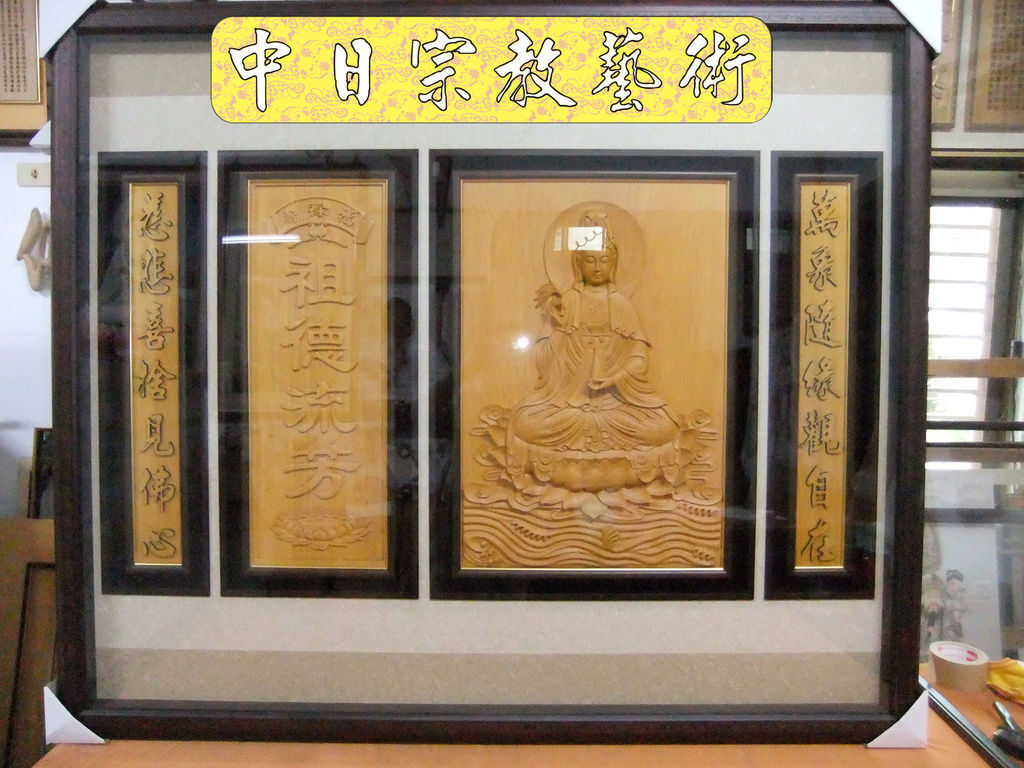 中日宗教藝術
萬象隨緣觀自在
祖德流芳
慈悲喜捨見佛心